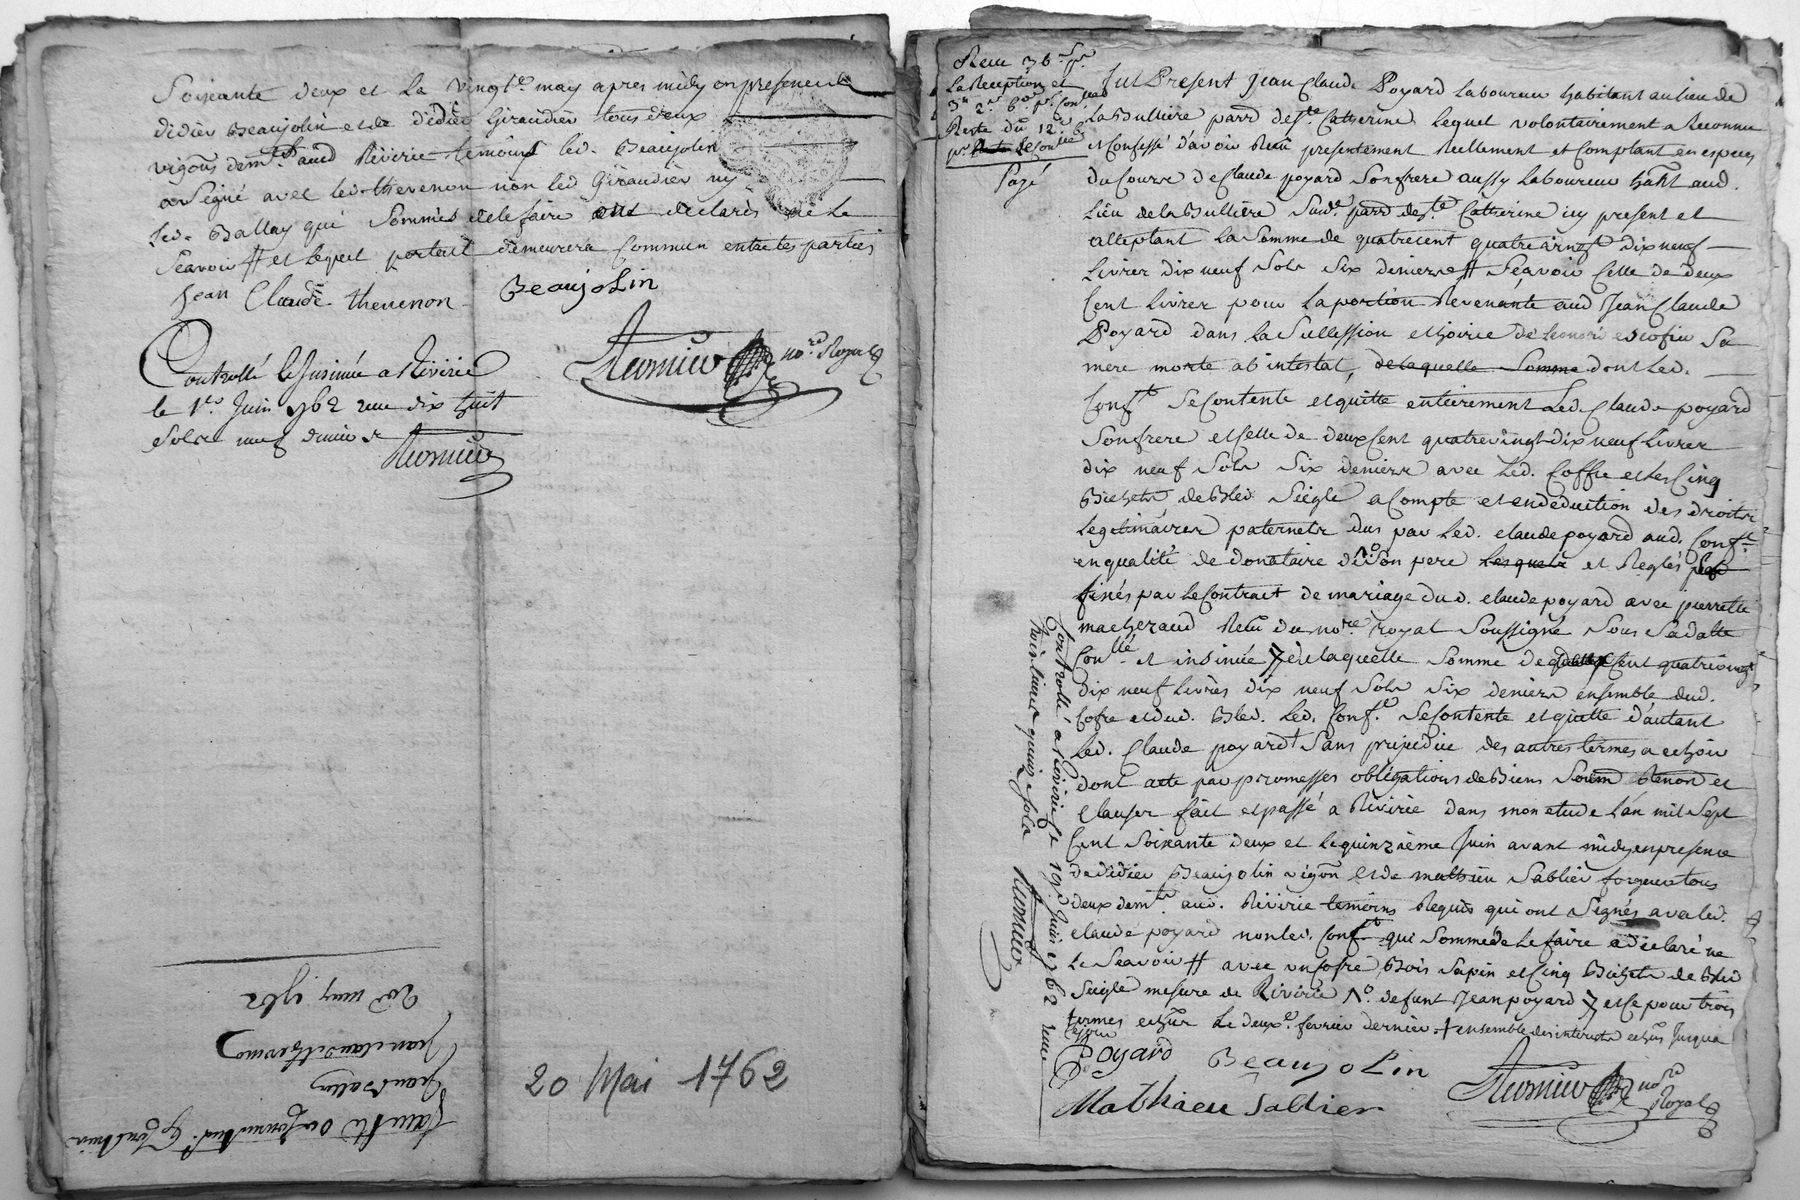 Soixante deux et La vingt.e may apres midy en presence de
didier Beaujolin et de didier Giraudier tous deux
vignons dem.ts aud Riverie temoins led. Beaujolin
a Signé avec led thevenon non led Giraudier ny
led. Ballay qui Sommés de le faire ont declarés ne le
Scavoir # et lequel portera demeurera Commun entre les parties
Jean Claude thevenon Beaujolin
no.re Royal
Controllé & Insinué a Riverie
le 1.er Juin 1762 recu dix huit
Sols neuf deniers
20 may 1762
Jean Claude thevenon
Jean Ballay
20 Mai 1762
Recu 36 s. p.r
La Reception et
Reste du 12 s
p.r Le Conlle
Payé
Fut Present Jean Claude Poyard Laboureur habitant au lieu de
La Bulliere parr.e de S.te Catherine Lequel volontairement a Reconnu
et Confessé d'avoir Recu presentement Reellement et Comptant en especes
du Cours De Claude poyard Son frere aussy Laboureur hab.t aud.
Lieu de la Bullière Susd.e parr.e de S.te Catherine icy present et
acceptant La Somme de quatre cent quatre vingt dix neuf
Livres dix neuf Sols Six deniers # Scavoir Celle de deux
Cent Livres pour La portion Revenante aud Jean Claude
Poyard dans La Succession et hoirie de Leonore escofier Sa
mere morte ab intestat, de laquelle Somme dont Led.
Conf.t Se Contente et quitte entierement Led. Claude poyard
Son frere et Celle de deux Cent quatre vingt dix neuf Livres
dix neuf Sols Six deniers avec Led. Coffre et Les Cinq
Bichets de Bled Seigle a Compte et en deduction des droits
Legitimaires paternels dus par Led. Claude poyard aud. Conf.t
en qualité de donataire dud Son pere Lesquels et Reglés
finés par Le Contract de mariage dud. Claude poyard avec pierrette
macheraud Recu du no.re royal Soussigné Sous Sa datte
Con.llé et insinué 7 de laquelle Somme de Cent quatre vingt
dix neuf Livres dix neuf Sols Six deniers ensemble dud.
Cofre et dud. Bled. Led. Conf.t Se Contente et quitte d'autant
Led. Claude poyard + Sans prejudice des autres termes a echoir
dont acte par promesses obligations de Biens Soum. Renon et
Clauses fait et passé a Riverie dans mon etude L'an mil Sept
Cent Soixante deux et le quinzième Juin avant midy en presence
de didier Beaujolin vignon et de mathieu Sablier forgeur tous
deux dem.ts aud. Riverie temoins Requis qui ont Signés avec led.
Claude poyard non led. Conf.t qui Sommé de Le faire a declaré ne
Le Scavoir # avec un Cofre Bois Sapin et Cinq Bichets de Bled
Seigle mesure de Riverie defunt Jean poyard 7 et Ce pour trois
termes echus Le deux.e fevrier dernier + ensemble des interets echus Jusqua
ce jour
Poyard Beaujolin
Mathieu Sablier no.re Royal
Controllé a Riverie Le 19.e Juin 1762 recu
trois livres quinze Sols